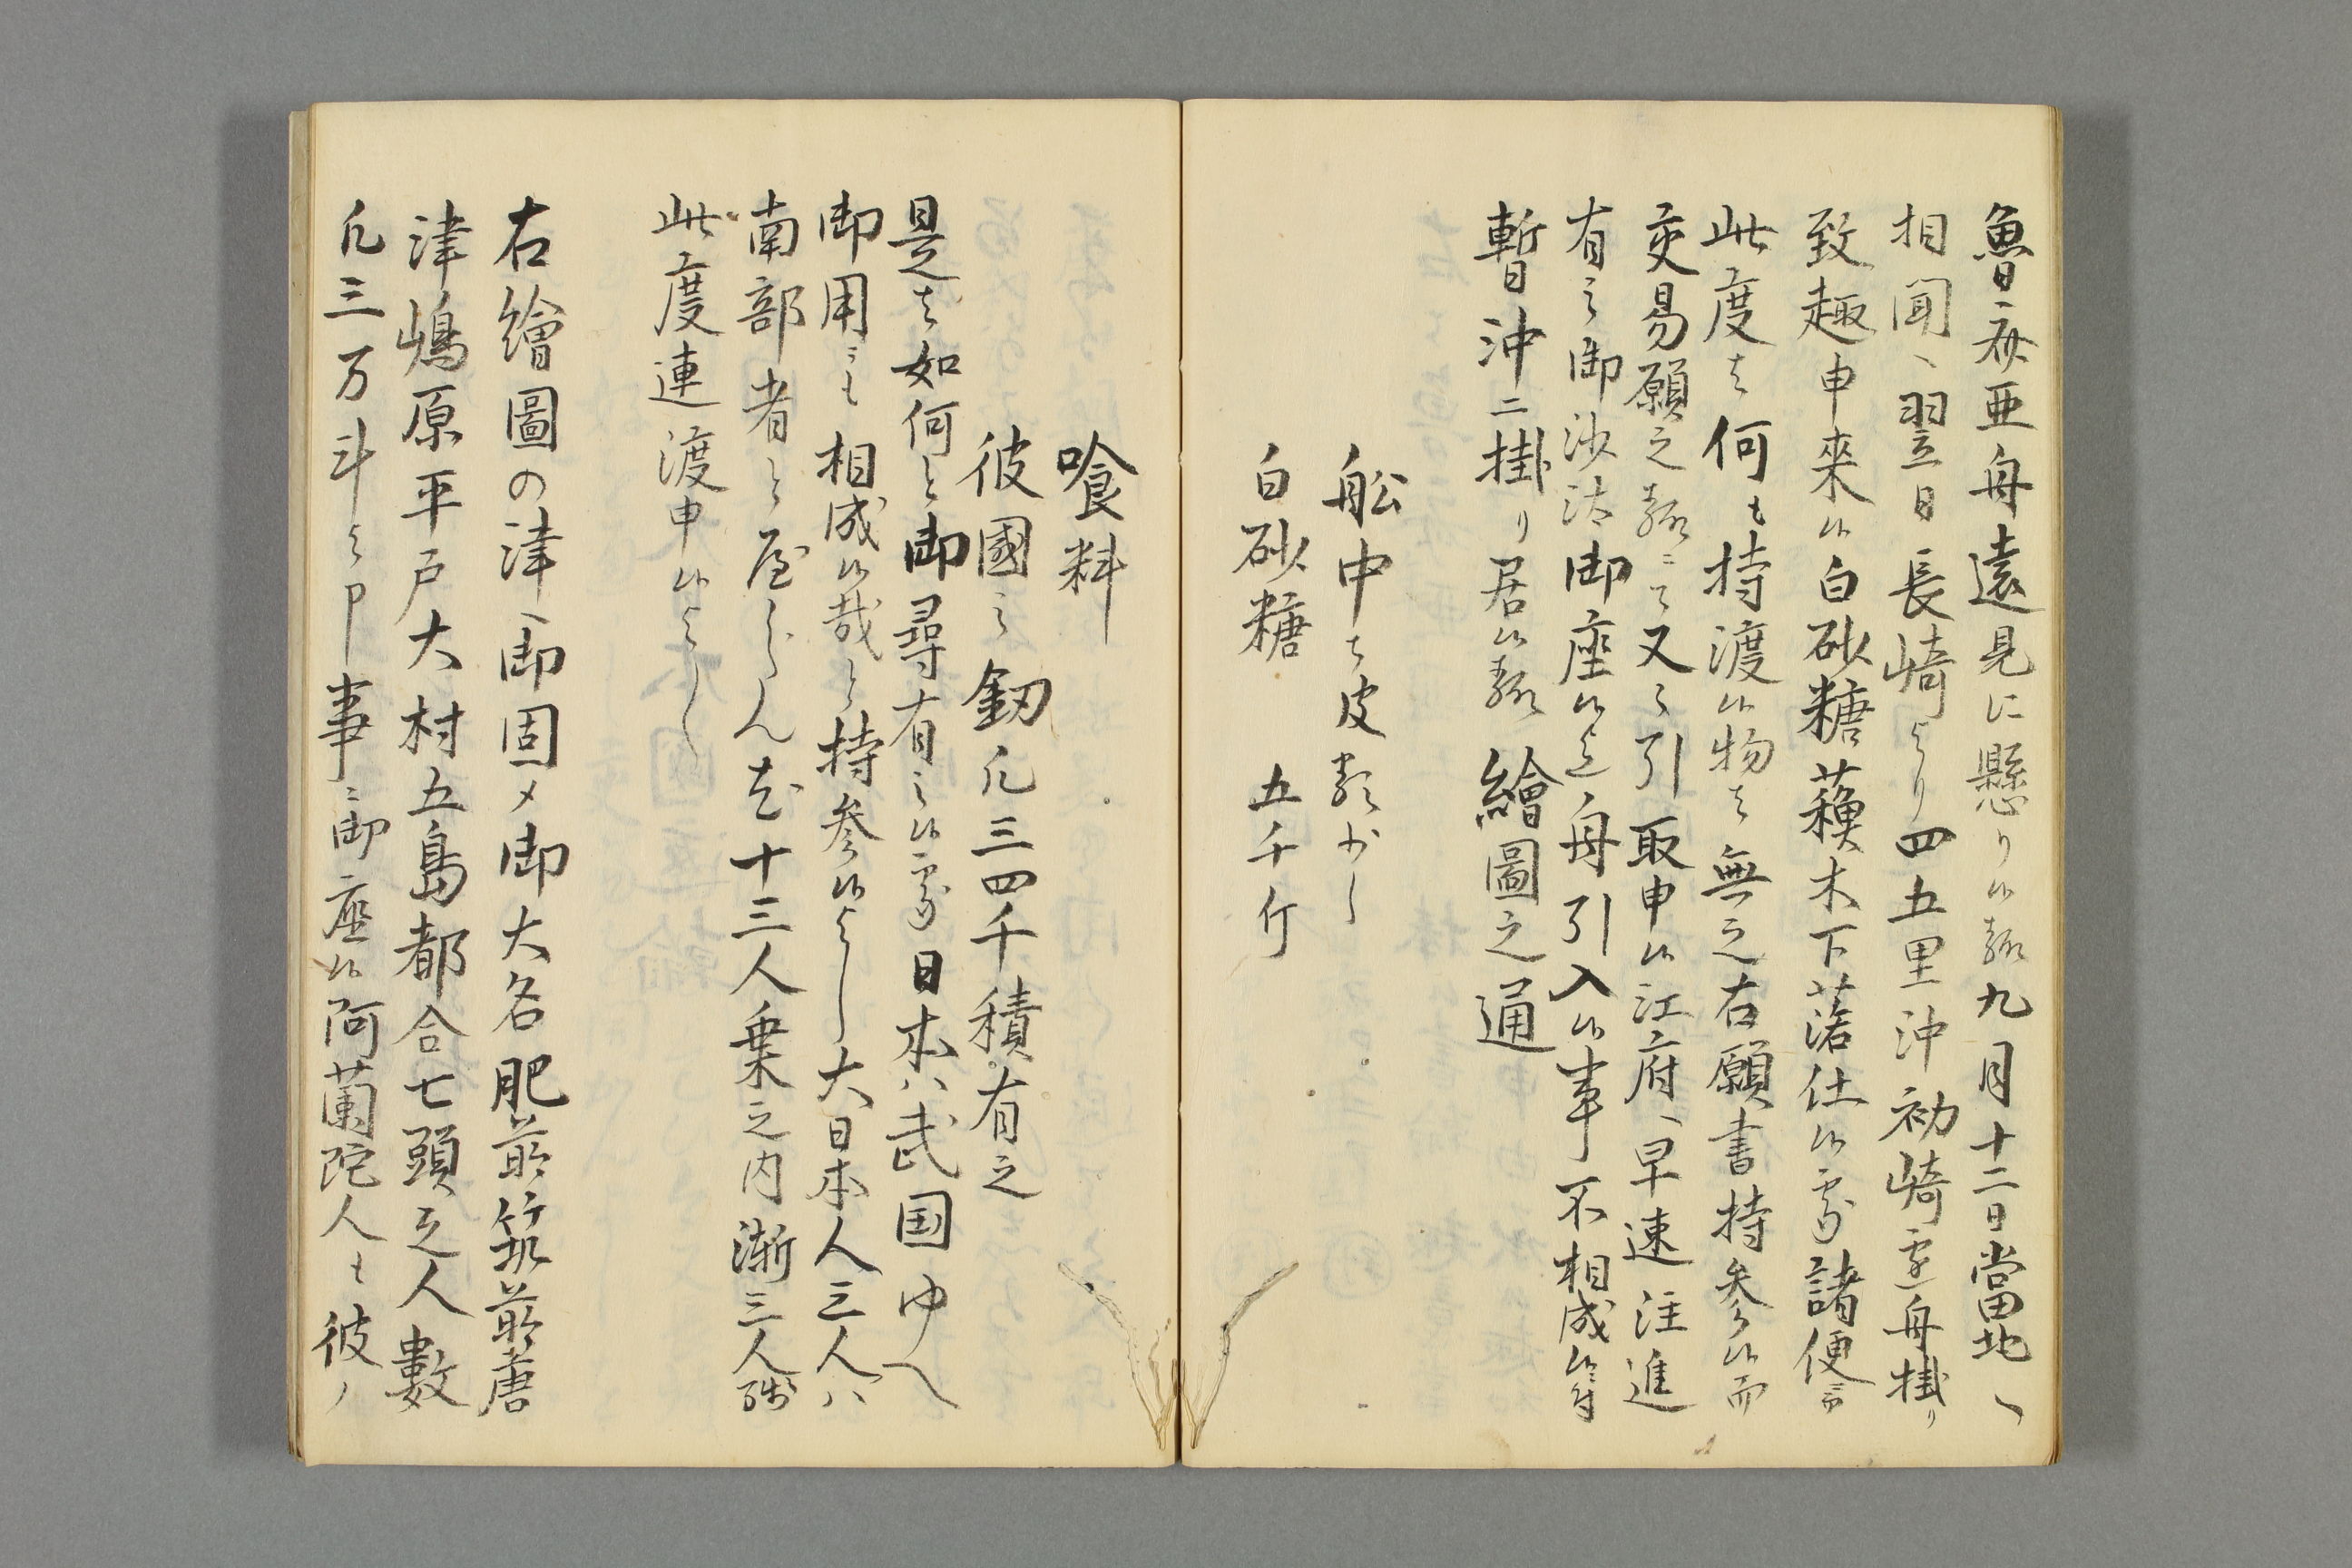 魯斎亜舟遠見に懸り候趣九月十二日當地へ
相聞へ翌日長崎より四五里沖初崎辺舟掛り
致趣申来候白砂糖蘓木下落仕候処諸便ニ而
此度者何も持渡候物者無之右願書持参候而
交易願之趣ニて又々引取申候江府へ早速注進
有之御沙汰御座候迄舟引入候事不相成候ニ付
暫沖ニ掛り居候趣繪圖之通
舩中ら皮類少し
白砂糖　五千斤
喰料
彼國之釼凡三四千積有之
是者如何と御尋有之候処日本ハ武国ゆへ
御用ニも相成候哉と持参候よし大日本人三人ハ
南部者と唐らん者十三人乗之内漸三人残
此度連渡申候よし
右繪圖の津へ御固メ御大名肥前筑前唐
津嶋原平戸大村五島都合七頭之人數
凡三万斗と申事ニ御座候阿蘭陀人も彼ノ